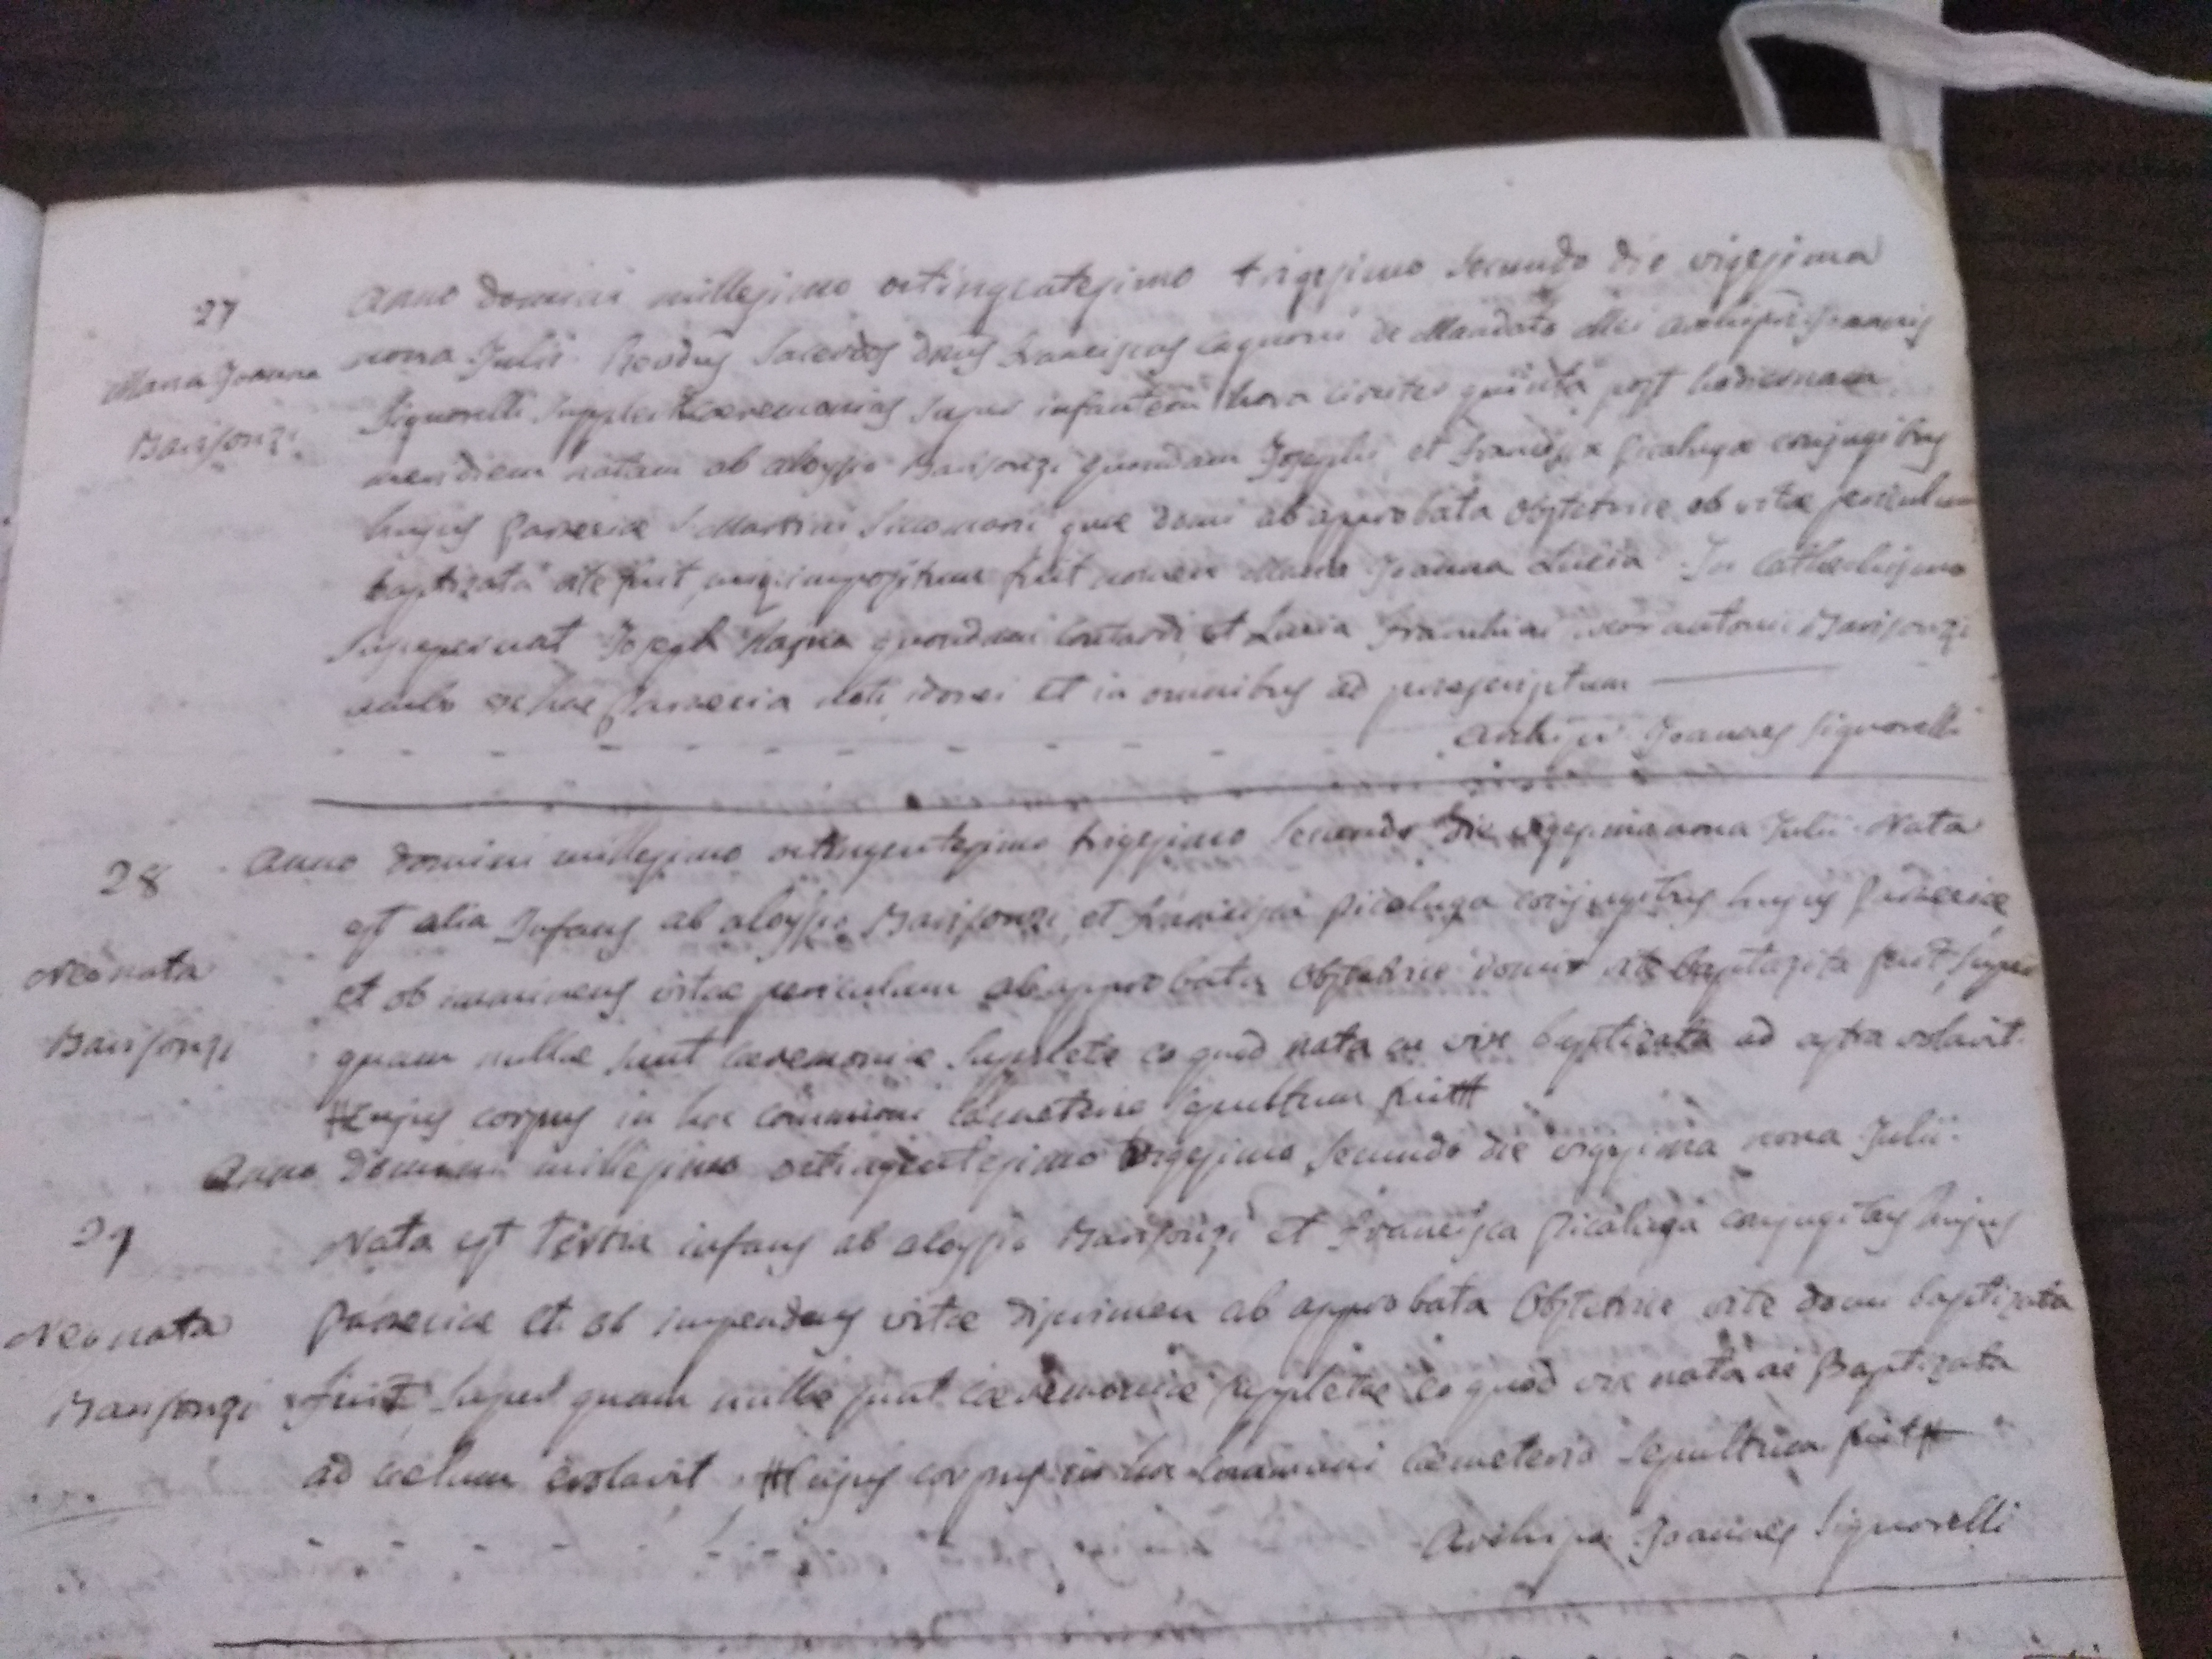 27
Maria Joanna
Barisonzi
Anno Domini millesimo octingentesimo trigesimo secundo die vigesima
nona Julii Revdus Sacerdos Dnus Franciscus Cagnoni de Mandato Mei Archipri Joannis
Signorelli supplevit caeremonias super infantem hora circiter quinta post hodiernam
meridiem natam ab Aloysio Barisonzi quondam Josephi et Francisca Picaluga conjugibus
hujus Paraeciae S. Martini quae domi ab approbata Obstetrice ob vitae periculum
baptizata rite fuit, impositum fuit nomen Maria Joanna Lucia. In Catechismo
Joseph quondam et Lucia Antonii Barisonzi
ambo ex hac Paraecia noti, idonei et in omnibus ad praescriptum
Archipr. Joannes Signorelli
28
Neonata
Barisonzi
Anno Domini millesimo octingentesimo trigesimo secundo die vigesima nona Julii. Nata
est alia Infans ab Aloysio Barisonzi et Francisca Picaluga conjugibus hujus Paraeciae
et ob imminens vitae periculum ab approbata Obstetrice domi rite baptizata fuit super
quam nullae sunt caeremoniae supletae eo quod nata ac vix baptizata ad astra volavit.
# Cujus corpus in hoc communi Caemeterio sepultum fuit #
29
Neonata
Barisonzi
Anno Domini millesimo octingentesimo trigesimo secundo die vigesima nona Julii.
Nata est tertia infans ab Aloysio Barisonzi et Francisca Picaluga conjugibus hujus
Paraeciae et ob impendens vitae discrimen ab approbata Obstetrice rite domi baptizata
fuit super quam nullae sunt caeremoniae suppletae eo quod vix nata ac Baptizata
ad caelum evolavit. # Cujus corpus in hoc communi Caemeterio sepultum fuit #
Archipr. Joannes Signorelli